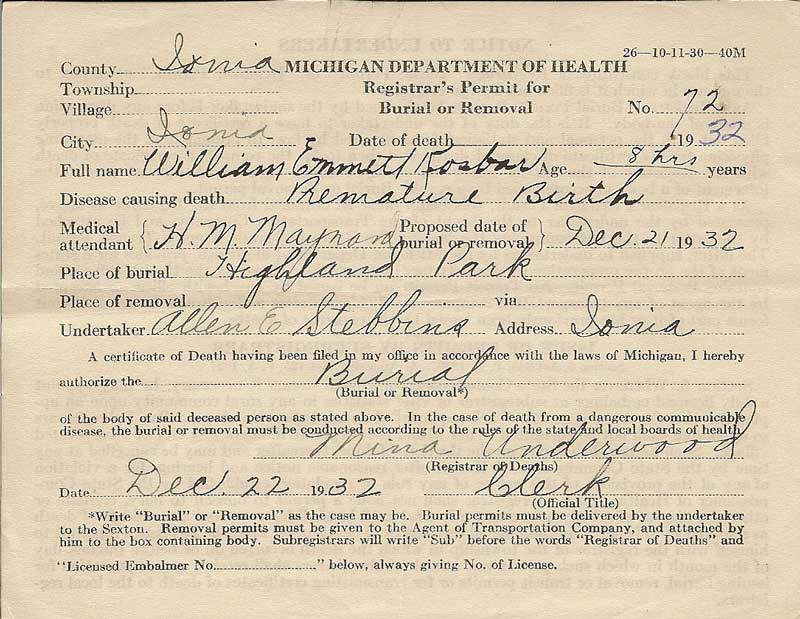 26—10-11-30—40M
County Ionia MICHIGAN DEPARTMENT OF HEALTH
Township Registrar's Permit for
Village Burial or Removal No. 72
City Ionia Date of death 1932
Full name William Emmett Rosbar Age 8 hrs years
Disease causing death Premature Birth
Medical attendant { H. M. Maynard Proposed date of burial or removal } Dec. 21 1932
Place of burial Highland Park
Place of removal via
Undertaker Allen E Stebbins Address Ionia
A certificate of Death having been filed in my office in accordance with the laws of Michigan, I hereby
authorize the Burial
(Burial or Removal*)
of the body of said deceased person as stated above. In the case of death from a dangerous communicable
disease, the burial or removal must be conducted according to the rules of the state and local boards of health.
Mina Underwood
(Registrar of Deaths)
Date Dec. 22 1932 Clerk
(Official Title)
*Write "Burial" or "Removal" as the case may be. Burial permits must be delivered by the undertaker
to the Sexton. Removal permits must be given to the Agent of Transportation Company, and attached by
him to the box containing body. Subregistrars will write "Sub" before the words "Registrar of Deaths" and
"Licensed Embalmer No. " below, always giving No. of License.